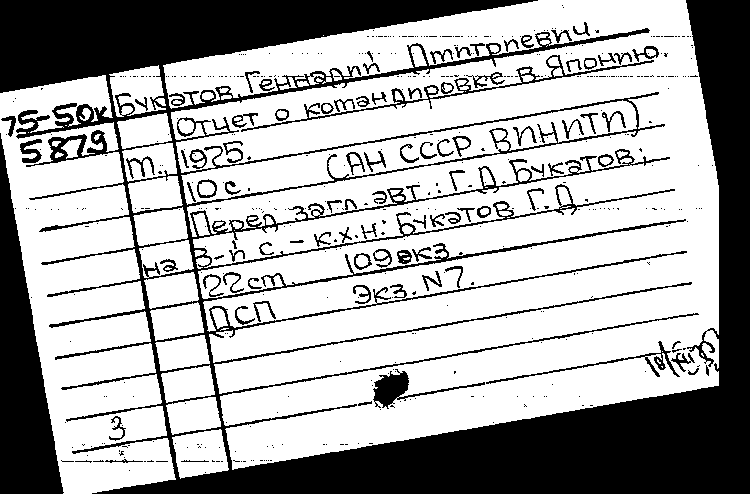 75-50к Букатов, Геннадий Дмитриевич.
5879 Отчет о командировке в Японию.
М., 1975.
10 с. (АН СССР. ВИНИТИ).
Перед загл. авт.: Г.Д. Букатов;
на 3-й с. - к.х.н: Букатов Г.Д.
22 см. 109 экз.
ДСП Экз. N7.
3